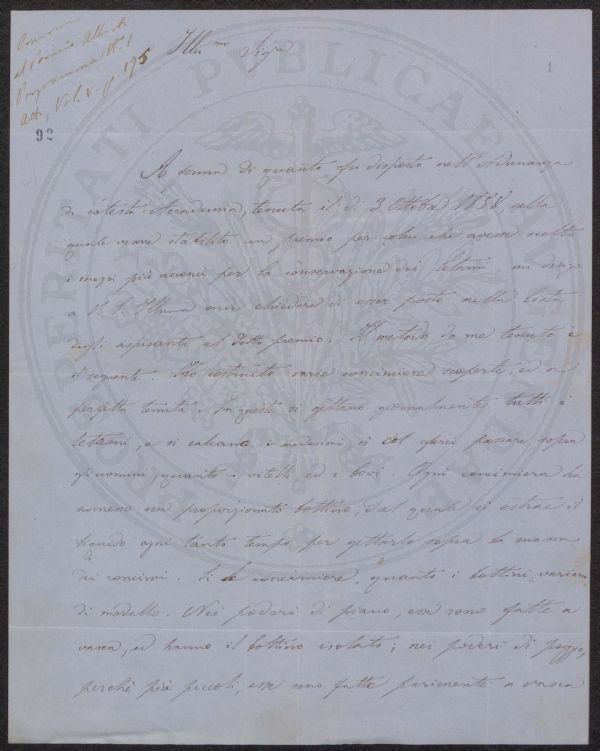 Concorso
al Premio Alberti
Programma N. 1
Atti, Vol. V. p. 175
92
1
Illmo Sigre
A forma di quanto fu disposto nell'Adunanza
di cotesta Accademia, tenuta il dì 3 Ottobre 1858 nella
quale venne stabilito un premio per colui che avesse scelto
i mezzi più acconci per la conservazione dei letami mi dirigo
a V. S. Illma onde chiedere di esser posto nella lista
degli aspiranti al detto premio. Il metodo da me tenuto è
il seguente. Ho costruito varie concimiere scoperte, ed a
perfetta tenuta. In queste si gettano giornalmente tutti i
letami, e si calcano i medesimi, sì col farci passare sopra
gli uomini, quanto i vitelli, ed i bovi. Ogni concimiera ha
annesso un proporzionato bottino, dal quale si estrae il
liquido ogni tanto tempo per gettarlo sopra la massa
dei concimi. Sì le concimiere, quanto i bottini variano
di modello. Nei poderi di piano, esse sono fatte a
vasca, ed hanno il bottino isolato; nei poderi di poggio,
perchè più piccoli, esse sono fatte parimente a vasca